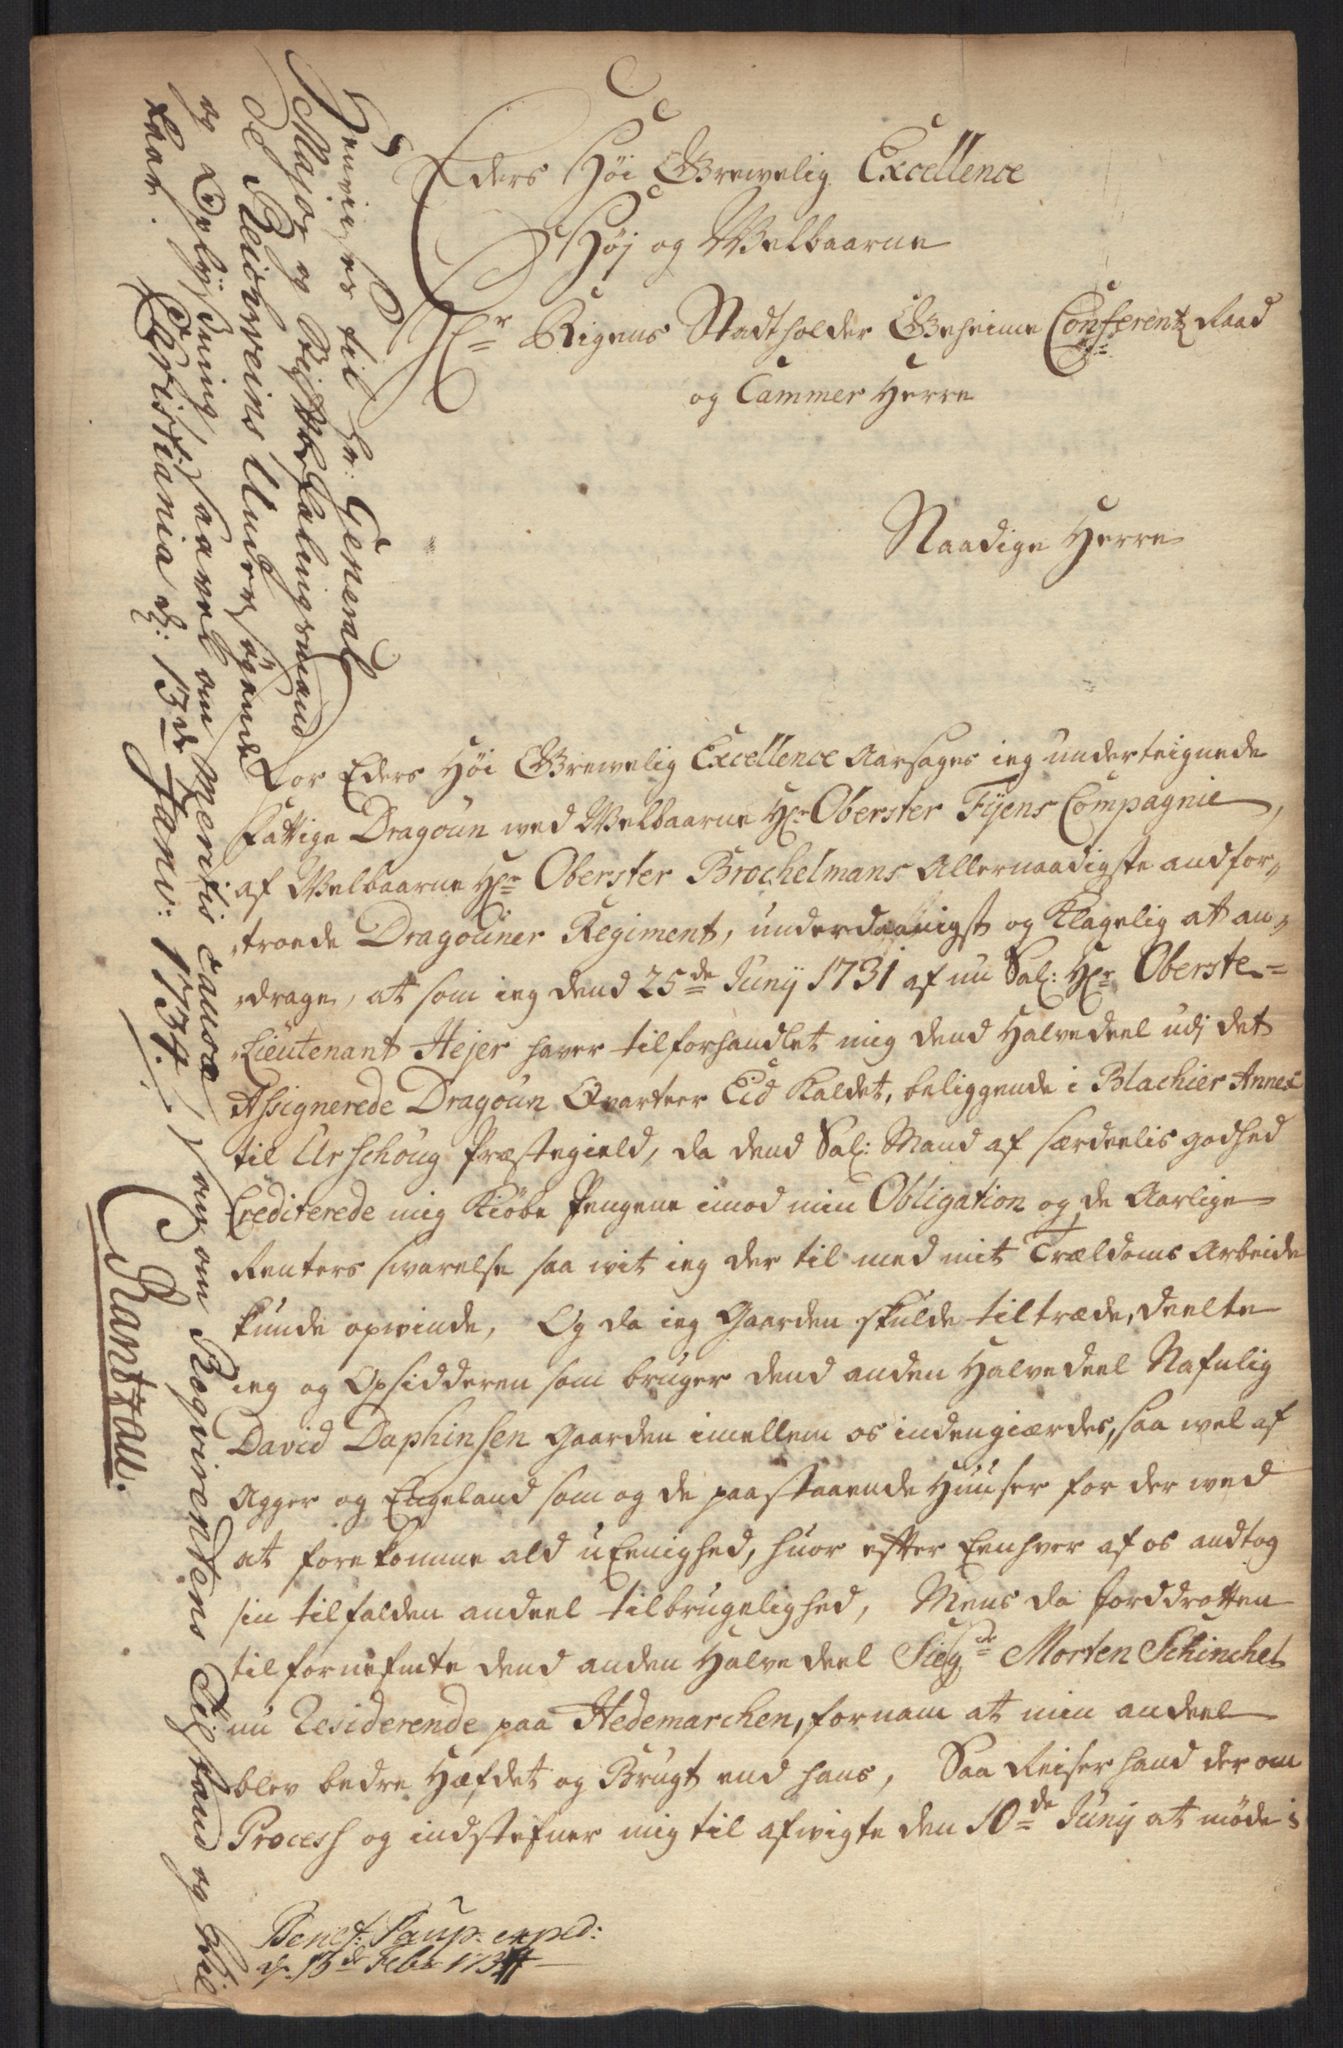 Eders Høi Grevelig Excellence
Høj og Welbaarne
Hr Rigens Stadtholder Geheime Conferentz Raad
og Cammer Herre
Naadige Herre
For Eders Høi Grevelig Excellence Aarsages ieg underteignede
Fattige Dragoun wed Welbaarne Hr Oberster Fÿens Compagnie,
af Welbaarne Hr Oberster Brochelmans Allernaadigste andfor-
troede Dragouner Regiment, underdaanigst og Klagelig at an-
drage, at som ieg dend 25de Junij 1731 af nu Sal: Hr Oberste-
Lieutenant Hejer haver tilforhandlet mig dend Halvedeel udj det
Assignerede Dragoun Qvarteer Eid Kaldet, beliggende i Blachier Annex
til Urschoug Præstegield, da dend Sal: Mand af særdeelis godhed
Crediterede mig Kiøbe Pengene imod min Obligation og de Aarlige
Renters svarelse saa vit ieg der til med mit Trældoms Arbeide
kunde opvinde, Og da ieg Gaarden skulde tiltræde, deelte
ieg og Opsidderen som bruger dend anden Halvedeel Nafnlig
David Daphinsen Gaarden imellem os indengiærdes, saa wel af
Agger og Engeland som og de paastaaende Huuser for der wed
at forekomme ald uEenighed, huor efter Eenhver af os andtog
sin tilfalden andeel til brugelighed, Mens da Jorddrotten
til fornefnte dend anden Halvedeel Siegr Morten Schinchel
nu Residerende paa Hedemarchen, fornam at min andeel
blev bedre Hæfdet og Brugt end hans, Saa Reiser hand der om
Process og indstefner mig til afvigte den 10de Junij at møde i
Benef: Paup: exped:
d. 13de Febr 1734
Henviser til Hr: General
Major og Befalingsmand
de Reichweins Undersøgende
og Oplysning saavel om Mentis causæ
som om Reqvirentens Tilstand og Vil
kaar. Christiania d: 13de Janv: 1734.
Rantzau.